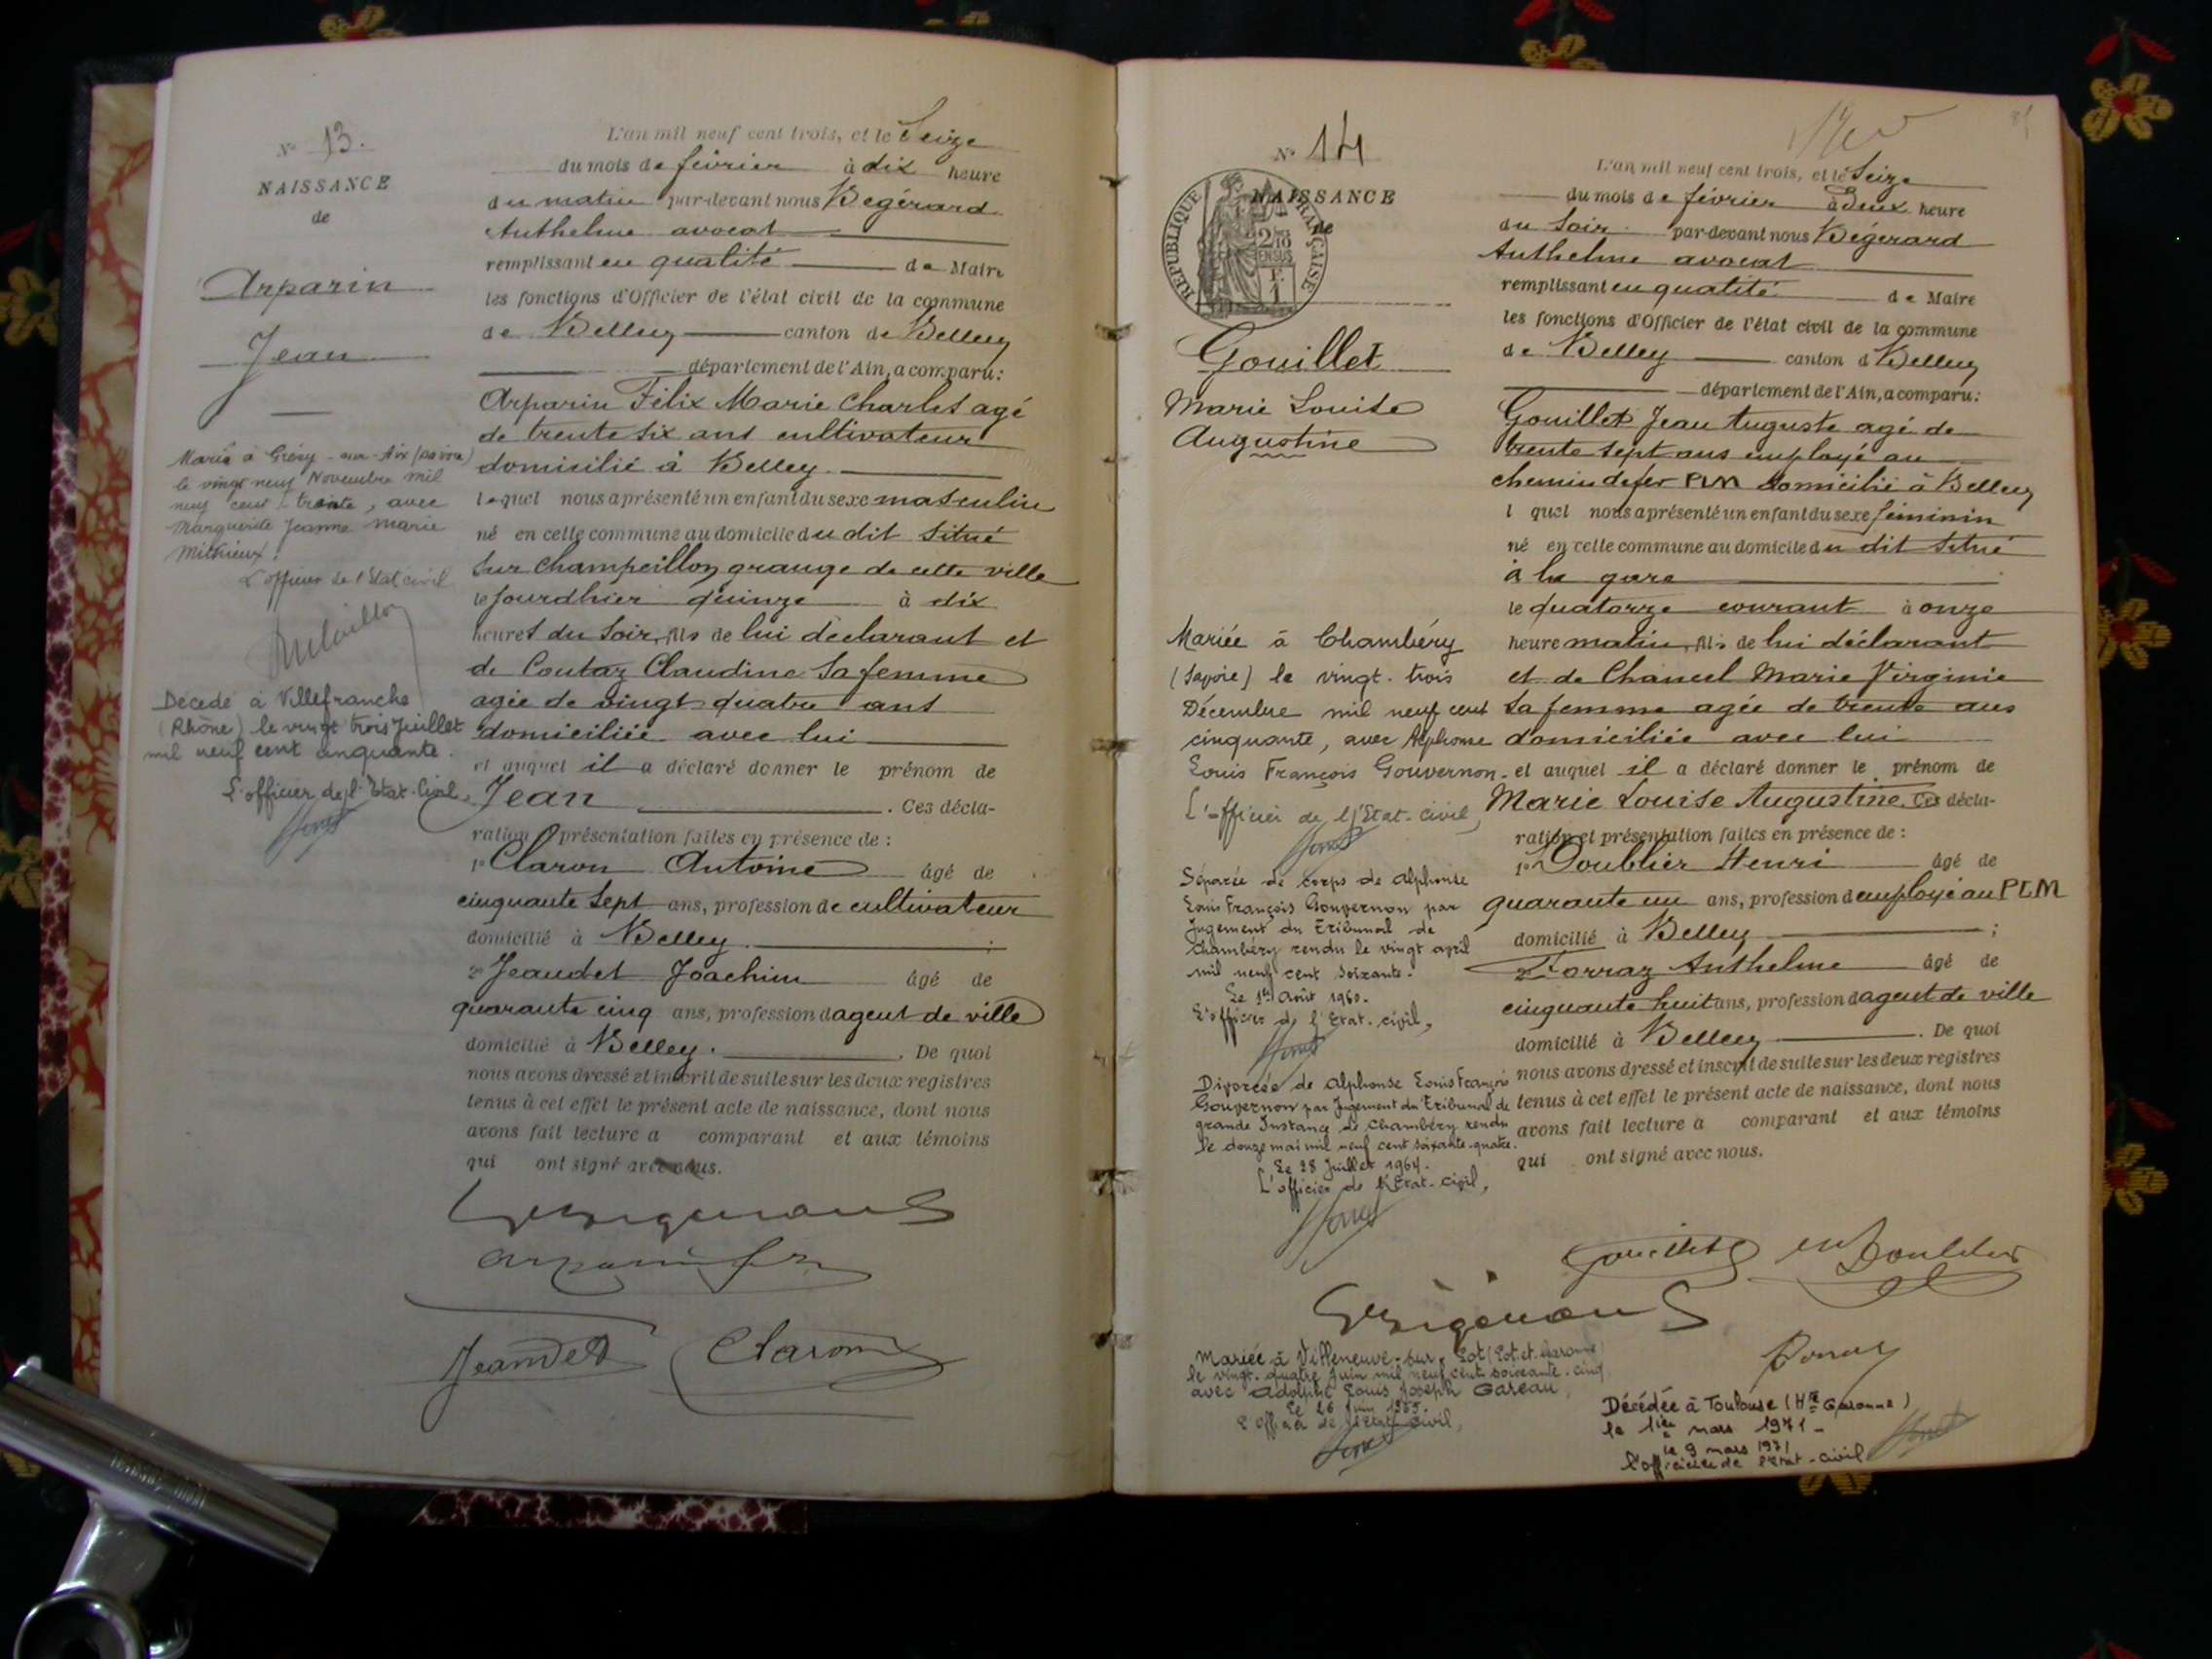 N° 13.
NAISSANCE
de
Arparin
Jean
Marié à Grésy-sur-Aix (Savoie)
le vingt neuf Novembre mil
neuf cent trente, avec
Marguerite Jeanne Marie
Mithieux.
L'officier de l'Etat civil
Décédé à Villefranche
(Rhône) le vingt trois Juillet
mil neuf cent cinquante.
L'officier de l'Etat-Civil,
L'an mil neuf cent trois, et le Seize
du mois de février à dix heure
du matin par-devant nous Bégérard
Anthelme avocat
remplissant en qualité de Maire
les fonctions d'Officier de l'état civil de la commune
de Belley canton de Belley
département de l'Ain, a comparu:
Arparin Félix Marie Charles agé
de trente six ans cultivateur
domicilié à Belley.
lequel nous a présenté un enfant du sexe masculin
né en cette commune au domicile du dit situé
sur Champeillon grange de cette ville
le jourdhier quinze à dix
heures du soir, fils de lui déclarant et
de Coutaz Claudine sa femme
agée de vingt quatre ans
domiciliée avec lui
et auquel il a déclaré donner le prénom de
Jean . Ces décla-
ration et présentation faites en présence de :
1° Claron Antoine âgé de
cinquante sept ans, profession de cultivateur
domicilié à Belley. ;
2° Jeaudet Joachim âgé de
quarante cinq ans, profession d agent de ville
domicilié à Belley. . De quoi
nous avons dressé et inscrit de suite sur les deux registres
tenus à cet effet le présent acte de naissance, dont nous
avons fait lecture a comparant et aux témoins
qui ont signé avec nous.
Jeandet Claron
N° 14
NAISSANCE
de
REPUBLIQUE FRANÇAISE
Gouillet
Marie Louise
Augustine
Mariée à Chambéry
(Savoie) le vingt-trois
Décembre mil neuf cent
cinquante, avec Alphonse
Louis François Gouvernon.
L'officier de l'Etat-civil,
Séparée de corps de Alphonse
Louis François Gouvernon par
Jugement du Tribunal de
Chambéry rendu le vingt avril
mil neuf cent soixante.
Le 1er Août 1960.
L'officier de l'Etat-civil,
Divorcée de Alphonse Louis François
Gouvernon par Jugement du Tribunal de
grande Instance de Chambéry rendu
le douze mai mil neuf cent soixante-quatre.
Le 28 Juillet 1964.
L'officier de l'Etat-civil,
L'an mil neuf cent trois, et le Seize
du mois de février à Deux heure
du Soir par-devant nous Bégérard
Anthelme avocat
remplissant en qualité de Maire
les fonctions d'Officier de l'état civil de la commune
de Belley canton d Belley
département de l'Ain, a comparu:
Gouillet Jean Auguste agé de
trente sept ans employé au
chemin de fer PLM domicilié à Belley
l quel nous a présenté un enfant du sexe féminin
né en cette commune au domicile du dit situé
à la gare
le quatorze courant à onze
heure matin, fils de lui déclarant
et de Chancel Marie Virginie
sa femme agée de trente ans
domiciliée avec lui
et auquel il a déclaré donner le prénom de
Marie Louise Augustine. Ces décla-
ration et présentation faites en présence de :
1° Doublier Henri âgé de
quarante un ans, profession d employé au PLM
domicilié à Belley ;
2° Forraz Anthelme âgé de
cinquante huit ans, profession d agent de ville
domicilié à Belley . De quoi
nous avons dressé et inscrit de suite sur les deux registres
tenus à cet effet le présent acte de naissance, dont nous
avons fait lecture a comparant et aux témoins
qui ont signé avec nous.
Mariée à Villeneuve-sur-Lot (Lot-et-Garonne)
le vingt-quatre Juin mil neuf cent soixante-cinq
avec Adolphe Louis Joseph Gareau,
Le 26 Juin
L'officier de l'Etat-civil,
Décédée à Toulouse (Hte Garonne)
le 1er mars 1971 -
le 9 mars 1971
L'officier de l'Etat-civil